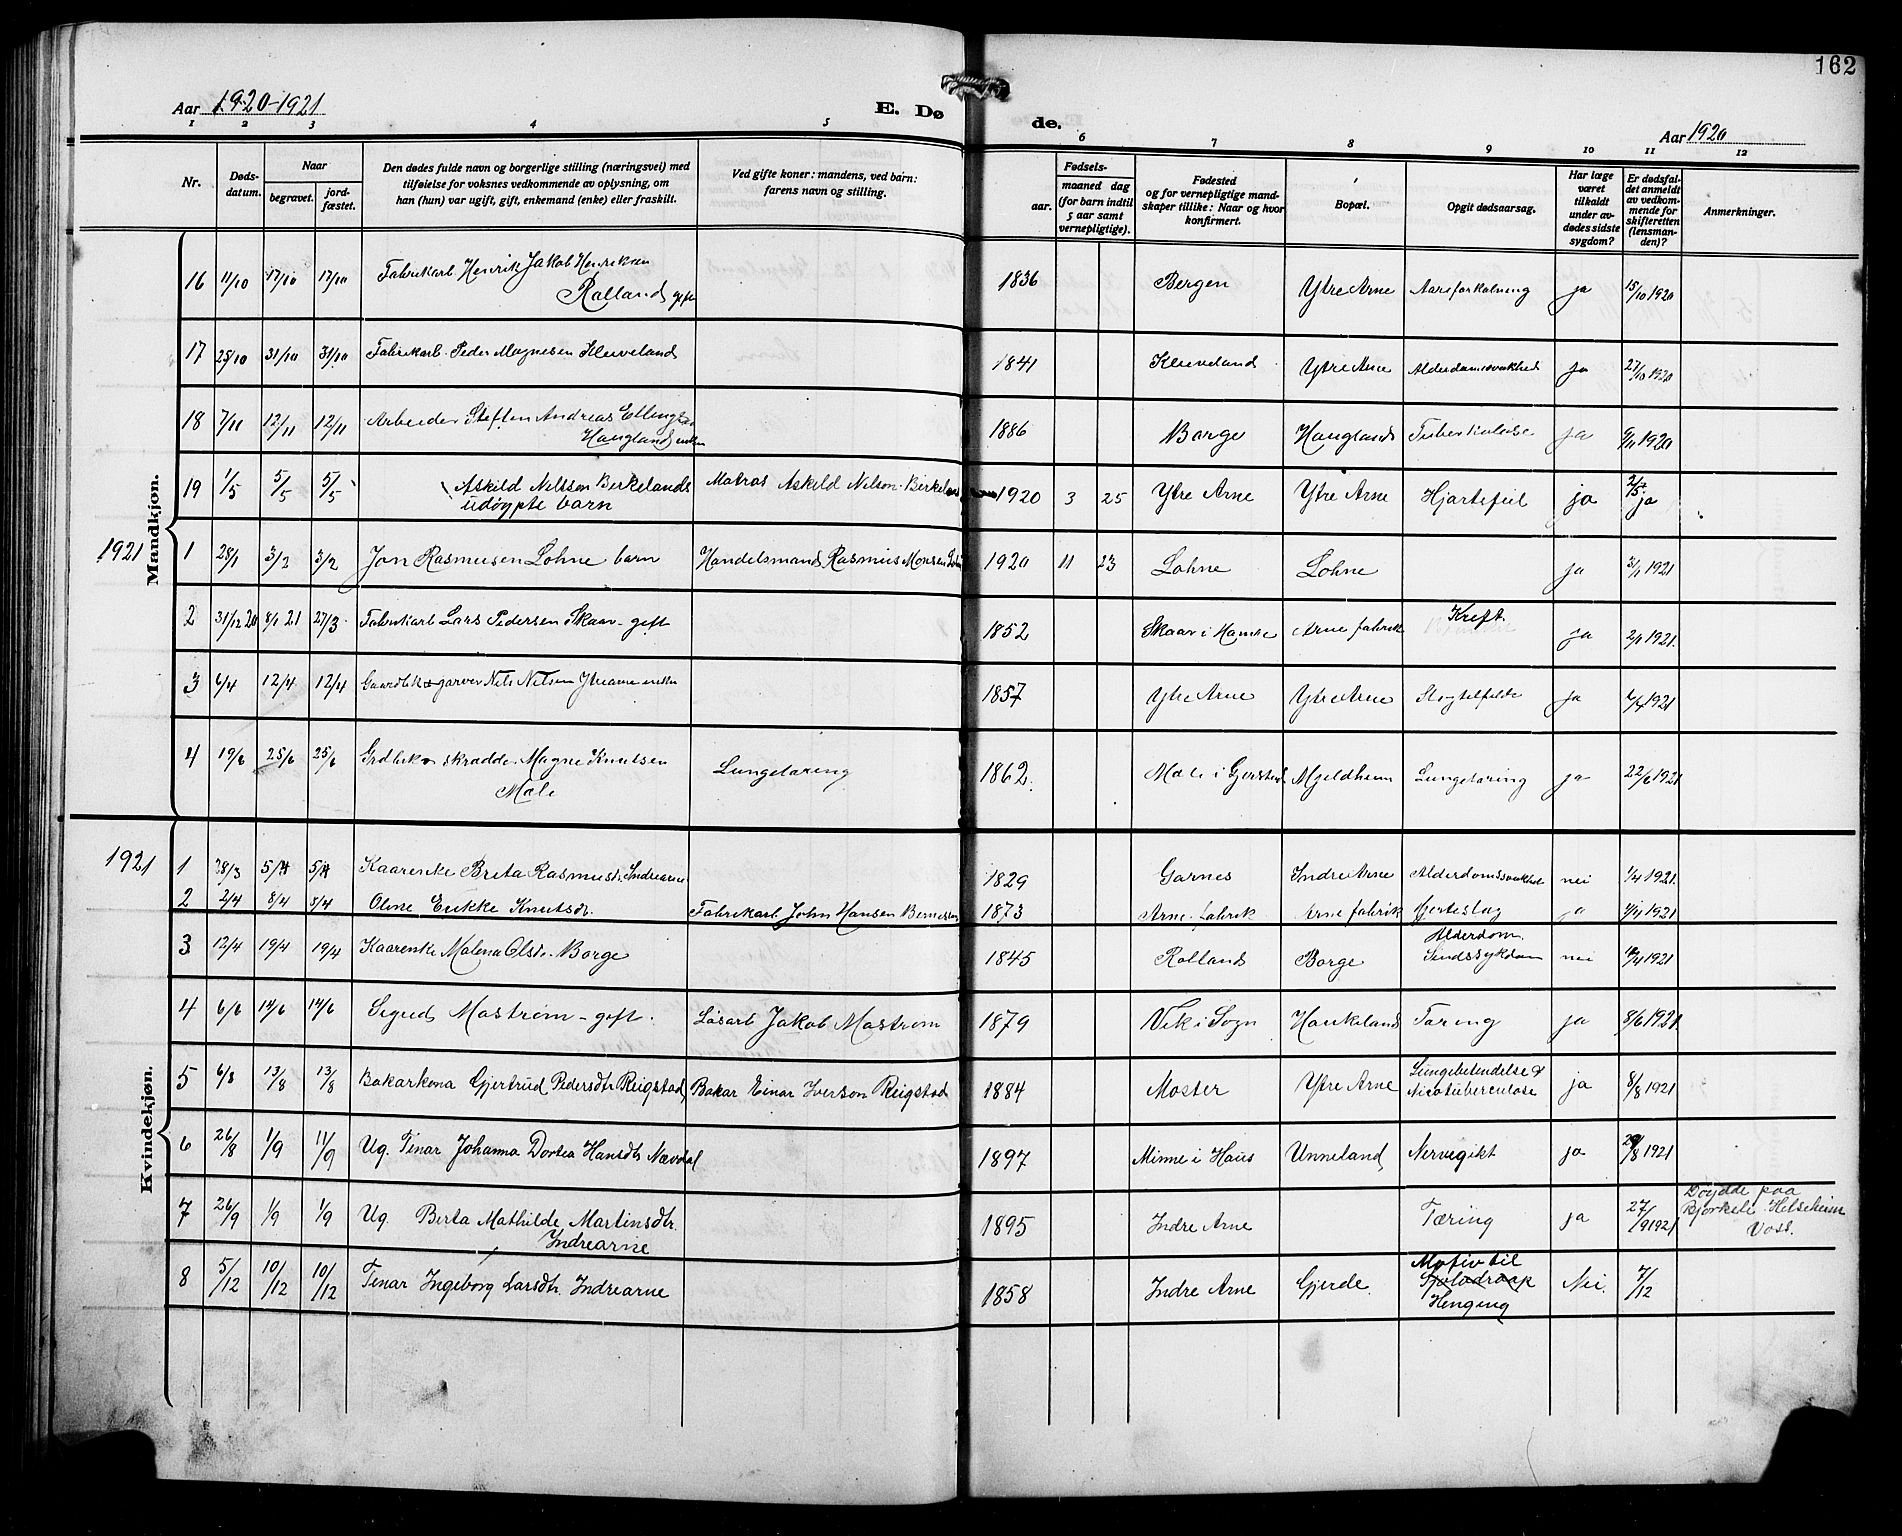 162
Aar 1920-1921
E. Dø
de.
Aar 1920
1 2 3 4 5 6 7 8 9 10 11 12
Nr.
Døds-
datum.
Naar
begravet.
jord-
fæstet.
Den dødes fulde navn og borgerlige stilling (næringsvei) med
tilføielse for voksnes vedkommende av oplysning, om
han (hun) var ugift, gift, enkemand (enke) eller fraskilt.
Ved gifte koner: mandens, ved barn:
farens navn og stilling.
Fødsels-
aar.
maaned dag
(for barn indtil
5 aar samt
vernepligtige).
Fødested
og for vernepligtige mand-
skaper tillike: Naar og hvor
konfirmert.
Bopæl.
Opgit dødsaarsag.
Har læge
været
tilkaldt
under av-
dødes sidste
sygdom?
Er dødsfal-
det anmeldt
av vedkom-
mende for
skifteretten
(lensman-
den)?
Anmerkninger.
Mandkjøn.
16 11/10 17/10 17/10 Fabrikarb Henrik Jakob Henriksen
Rolland gift 1836 Bergen Ytre Arne Aareforkalkning ja 15/10 1920
17 25/10 31/10 31/10 Fabrikarb. Peder Magnesen Kleiveland 1841 Kleiveland Ytre Arne Alderdomssvakhed ja 27/10 1920
18 7/11 12/11 12/11 Arbeider Steffen Andreas Ellingsen
Haugland enkem 1886 Borge Hauglands Tuberkulose ja 9/11 1920
19 1/5 5/5 5/5 Askild Nilssen Birkelands
udøypte barn Matros Askild Nilson Birkeland 1920 3 25 Ytre Arne Ytre Arne Hjartefeil ja 2/5 ja
1921
1 28/1 3/2 3/2 Jon Rasmusen Lohne barn Handelsmand Rasmus Monsen Lohne 1920 11 23 Lohne Lohne ja 31/1 1921
2 31/12 20 8/1 21 27/3 Fabrikarb Lars Pedersen Skaar - gift 1852 Skaar i Hamre Arne fabrik Kreft. ja 2/1 1921.
3 6/4 12/4 12/4 Gaardbr garver Nils Nilsen Ytrearne enkem 1857 Ytre Arne Ytre Arne Slagtilfælde ja 7/4 1921
4 19/6 25/6 25/6 Grdbruk skradder Magne Knutsen
Mæle Lungetæring 1862. Mæle i Gjerstad Mjeldheim Lungetæring ja 22/6 1921
Kvindekjøn.
1921
1 28/3 5/4 5/4 Kaarenke Brita Rasmusdtr. Indrearne 1829 Garnes Indre Arne Alderdomssvakhed nei 1/4 1921.
2 2/4 8/4 8/4 Oline Erikke Knutsdtr. Fabrikarb John Hansen 1873 Arne fabrik Arne fabrik Hjerteslag ja 4/4 1921
3 12/4 19/4 19/4 Kaarenke Malena Olsdtr. Borge 1845 Rolland Borge Alderdom.
Sindssykdom nei 1921
4 6/6 14/6 14/6 Sigrid Mostrøm - gift. Løsarb Jakob Mostrøm 1879 Vik i Sogn Haukeland Tæring ja 8/6 1921
5 6/8 13/8 13/8 Bakarkona Gjertrud Pedersdtr Reigstad Bakar Einar Iverson Reigstad 1884 Moster Ytre Arne Lungebetendelse &
Nicotuberculose ja 8/8 1921
6 26/8 1/9 11/9 Ug. Tenar Johanna Dortea Hansdtr Nævdal 1897 Minne i Haus Unneland Nervegikt ja 29/8 1921
7 26/9 1/9 1/9 Ug. Berta Mathilde Martinsdtr.
Indrearne 1895 Indre Arne Tæring ja 27/9 1921 Døydde paa
Bjørkeli Helseheim
Voss.
8 5/12 10/12 10/12 Tenar Ingeborg Larsdtr. Indrearne 1858 Indre Arne Gjerde. Motiv til
Sjolvdraap
Henging Nei. 7/12